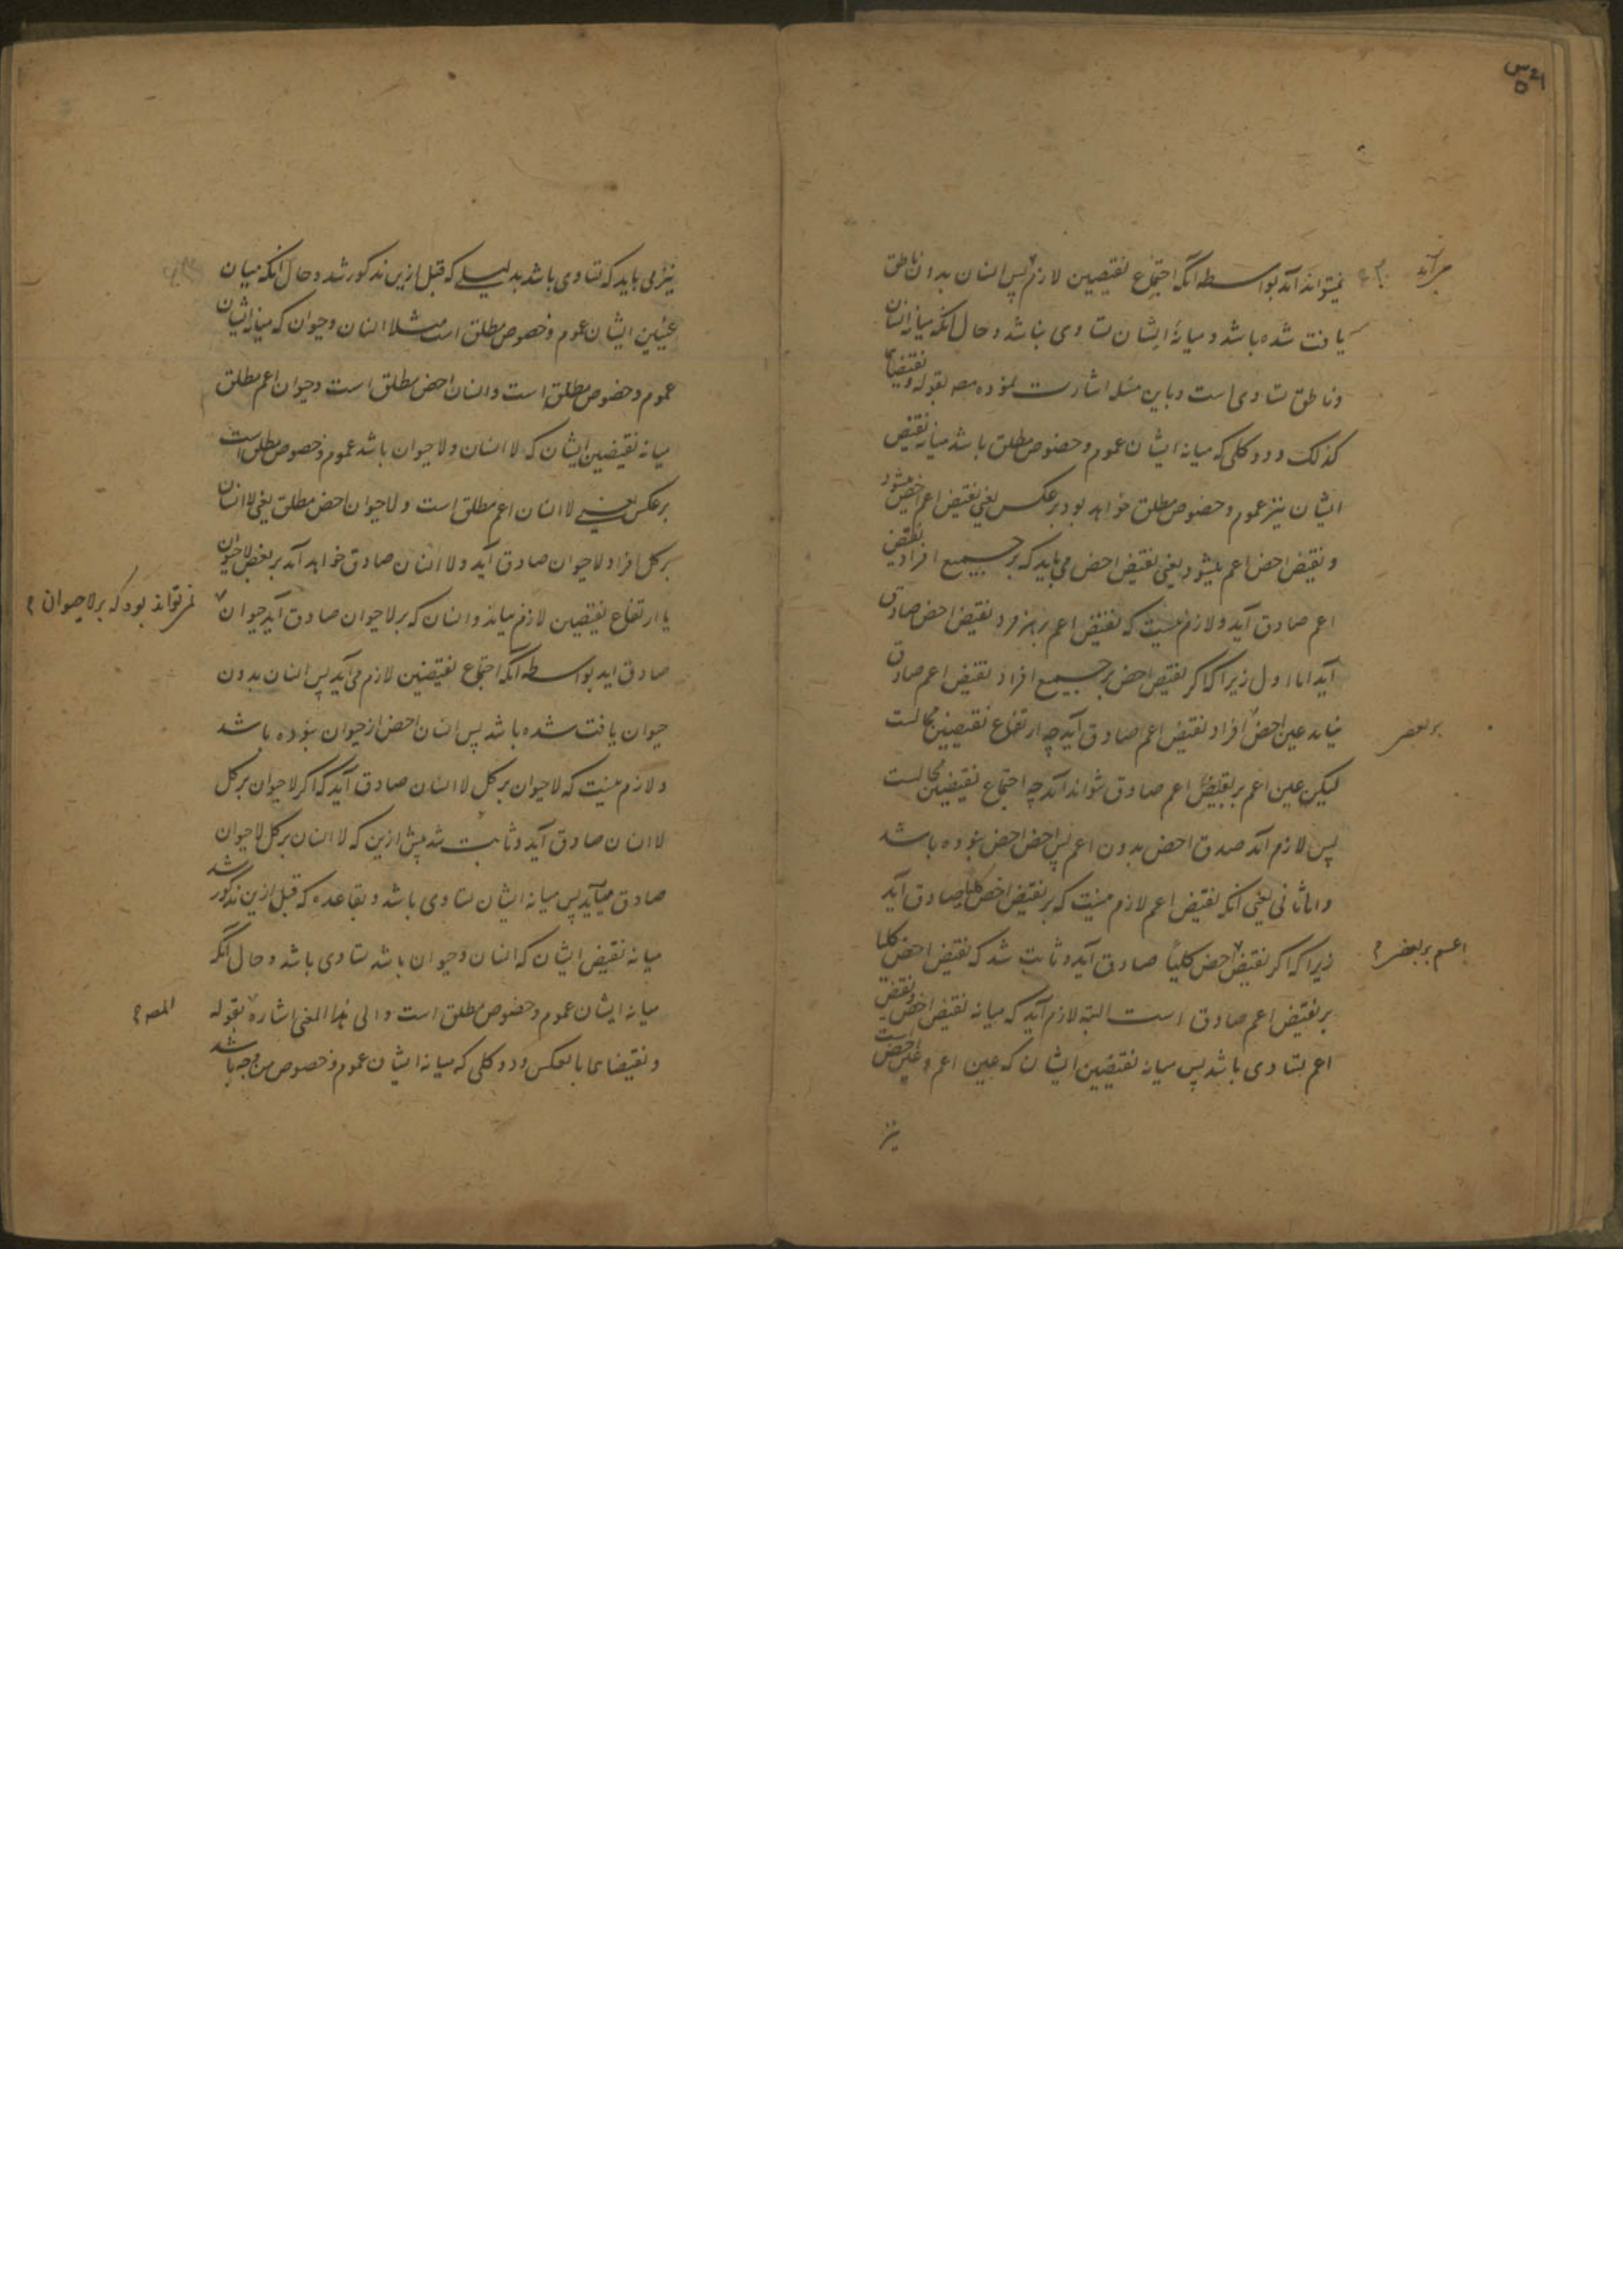 نمیتواند آمد بواسطه آنکه اجتماع نقیضین لازم پس انسان بدون ناطق
یافت شده باشد و میانهٔ ایشان تساوی نباشد و حال آنکه میانه انسان
و ناطق تساوی است و باین مسئله اشارت نموده مصه بقوله و نقیضاهما
کذلک و دو کلی که میانه ایشان عموم و خصوص مطلق باشد میانه نقیض
ایشان نیز عموم و خصوص مطلق خواهد بود بر عکس یعنی نقیض اعم اخص میشود
و نقیض اخص اعم میشود یعنی نقیض اخص می باید که بر جمیع افراد نقیض
اعم صادق آید و لازم نیست که نقیض اعم بر هر فرد نقیض اخص صادق
آید اما اول زیرا که اگر نقیض اخص بر جمیع افراد نقیض اعم صادق
نیاید عین اخص افراد نقیض اعم صادق آید چه ارتفاع نقیضین محالست
لیکن عین اعم بر نقیض اعم صادق نتواند آمد چه اجتماع نقیضین محالست
پس لازم آمد صدق اخص بدون اعم پس اخص اخص نبوده باشد
و اما ثانی یعنی آنکه نقیض اعم لازم نیست که بر نقیض اخص کلیا صادق آید
زیرا که اگر نقیض اخص کلیاً صادق آید و ثابت شد که نقیض اخص کلیا
بر نقیض اعم صادق است البته لازم آید که میانه نقیض اخص و نقیض
اعم تساوی باشد پس میانه نقیضین ایشان که عین اعم و عین اخص است
نیز
بر بعض
اعم بر بعض
نیز می باید که تساوی باشد بدلیلی که قبل ازین مذکور شد و حال آنکه میان
عینین ایشان عموم و خصوص مطلق است مثلا انسان و حیوان که میانه ایشان
عموم و خصوص مطلق است و انسان اخص مطلق است و حیوان اعم مطلق
میانه نقیضین ایشان که لا انسان و لا حیوان باشد عموم و خصوص مطلق است
بر عکس یعنی لا انسان اعم مطلق است و لا حیوان اخص مطلق یعنی لا انسان
بر کل افراد لا حیوان صادق آید و لا انسان صادق خواهد آمد بر بعض لا حیوان
یا ارتفاع نقیضین لازم میاید و انسان که بر لا حیوان صادق آید حیوان
صادق آید بواسطه آنکه اجتماع نقیضین لازم می آید پس انسان بدون
حیوان یافت شده باشد پس انسان اخص از حیوان نبوده باشد
و لازم نیست که لا حیوان بر کل لا انسان صادق آید که اگر لا حیوان بر کل
لا انسان صادق آید و ثابت شد پیش ازین که لا انسان بر کل لا حیوان
صادق میآید پس میانه ایشان تساوی باشد و بقاعده که قبل ازین مذکور شد
میانه نقیض ایشان که انسان و حیوان باشد تساوی باشد و حال آنکه
میانه ایشان عموم و خصوص مطلق است و الی هذا المعنی اشاره بقوله
و نقیضاهما بالعکس و دو کلی که میانه ایشان عموم و خصوص من وجه باشد
نمی تواند بود که بر لا حیوان
المصه